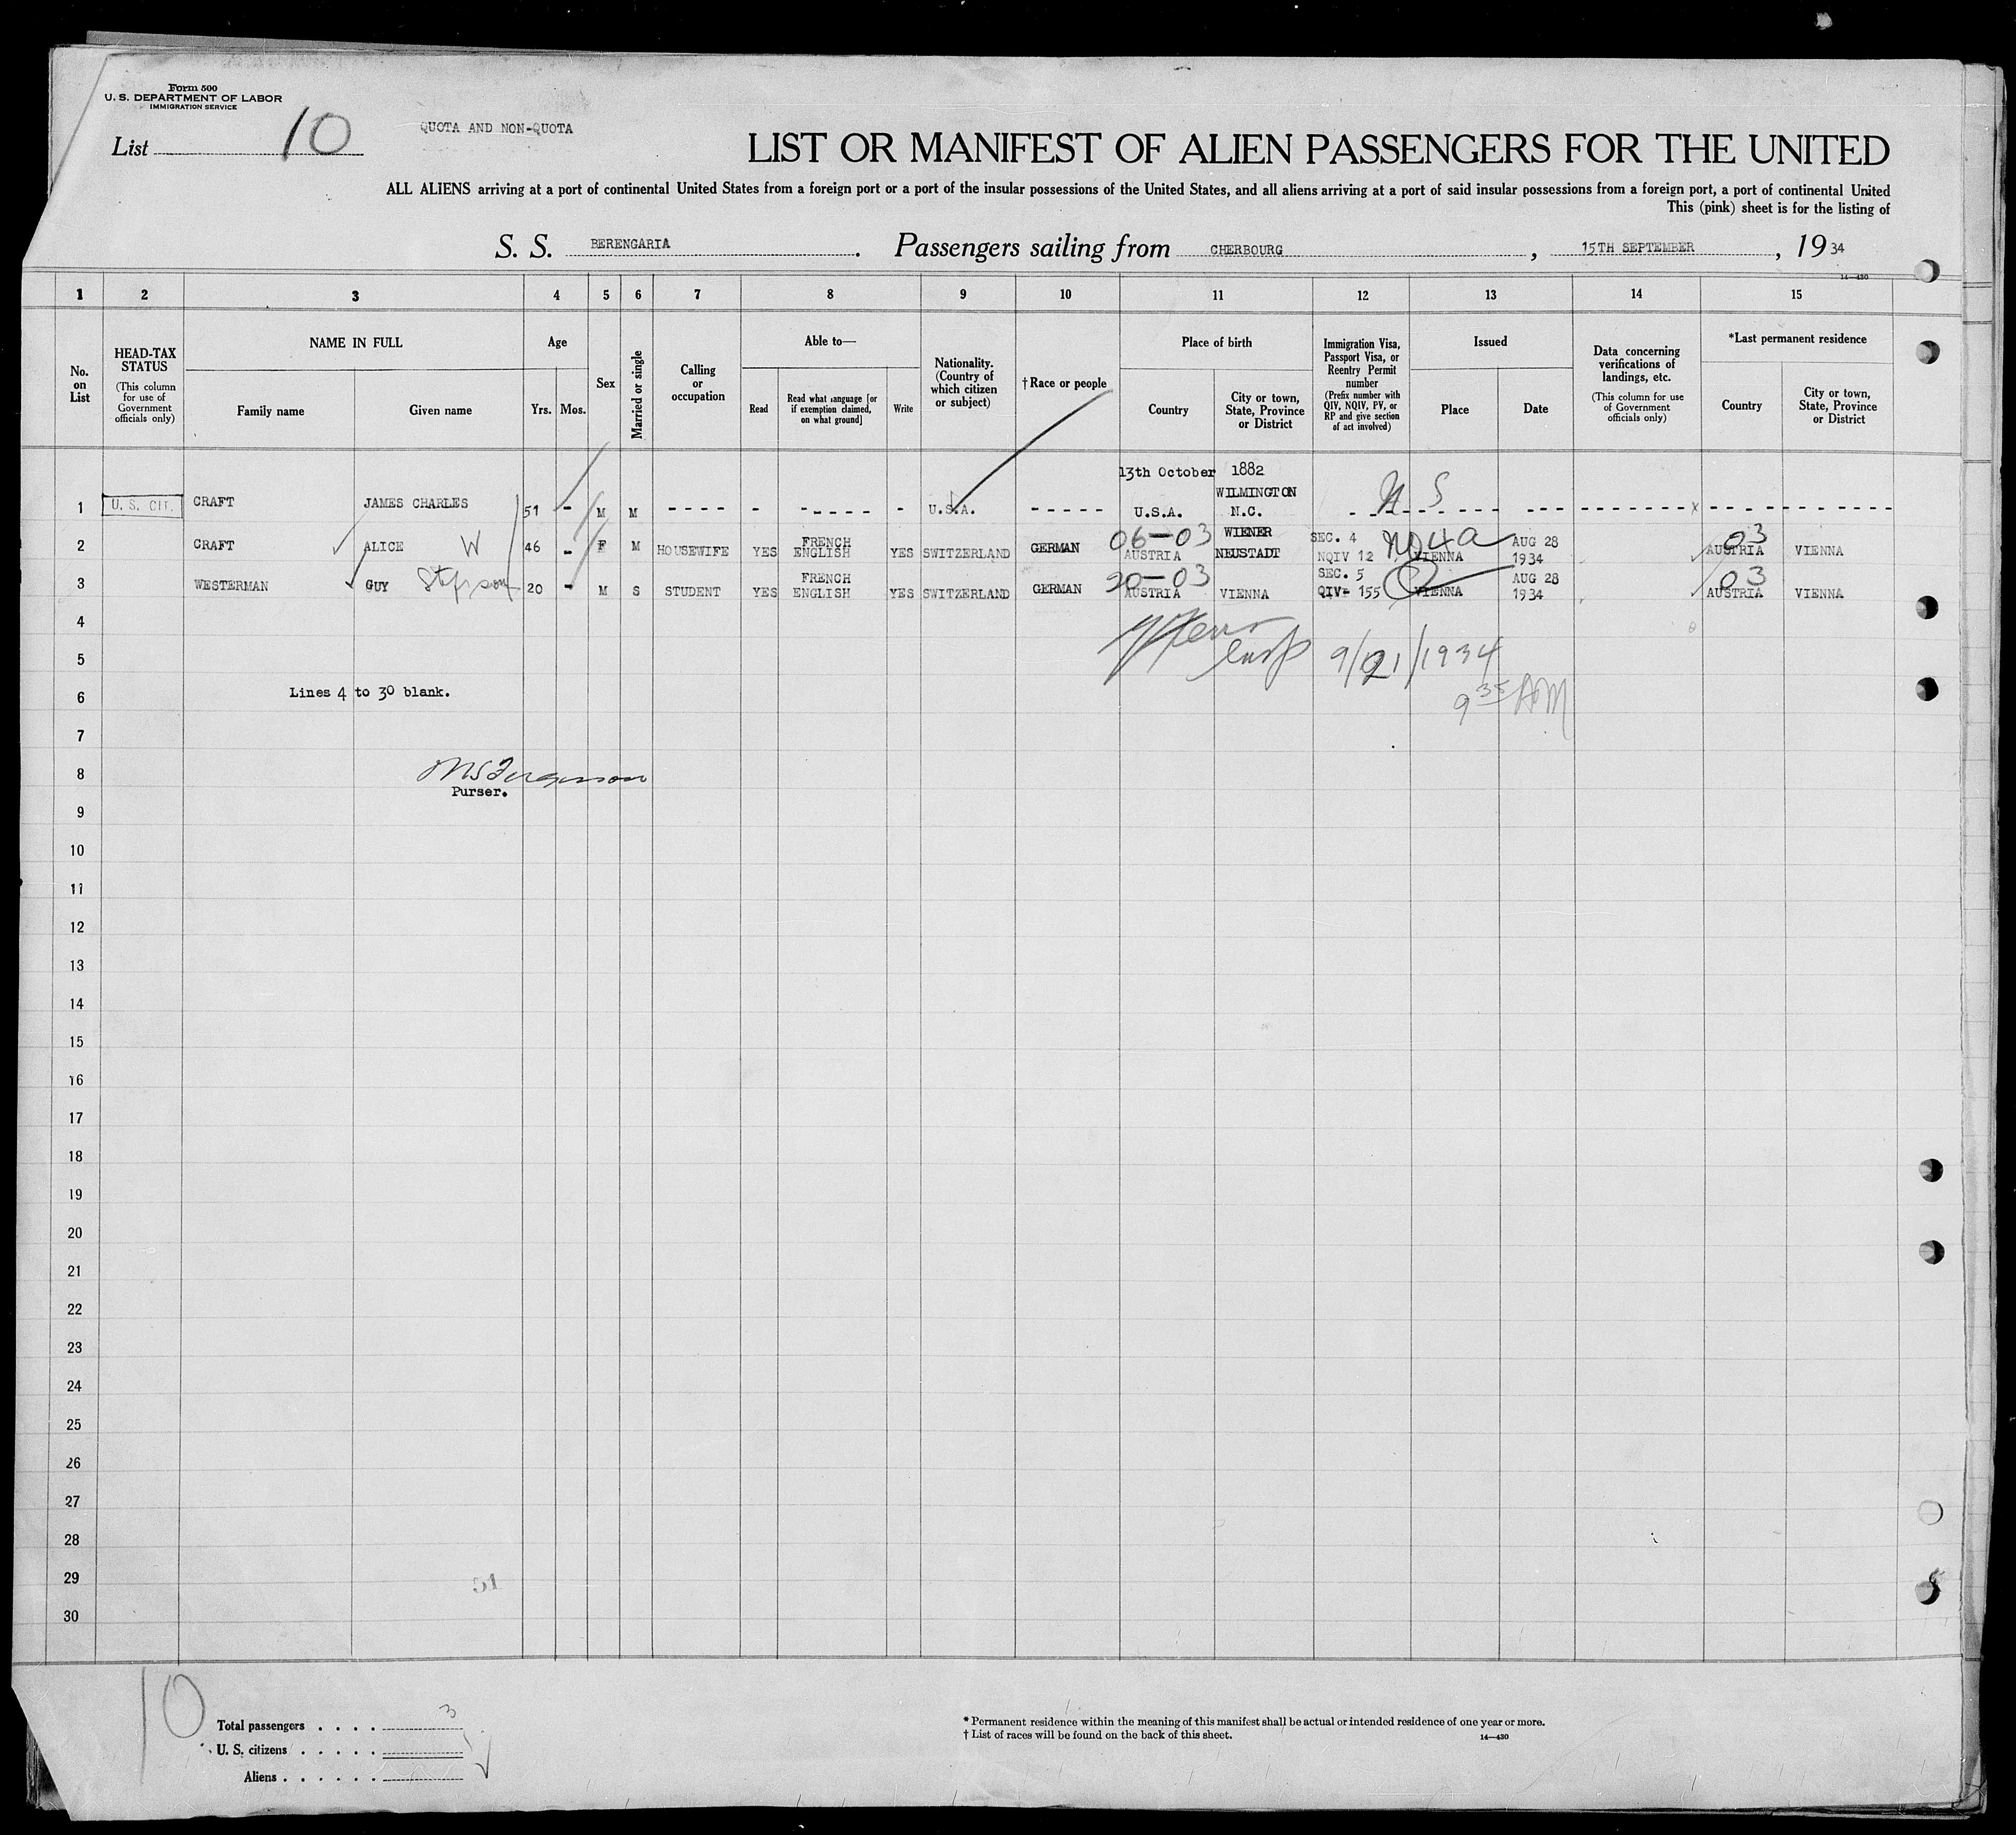 Form 500
U. S. DEPARTMENT OF LABOR
IMMIGRATION SERVICE
List 10
QUOTA AND NON-QUOTA
LIST OR MANIFEST OF ALIEN PASSENGERS FOR THE UNITED
ALL ALIENS arriving at a port of continental United States from a foreign port or a port of the insular possessions of the United States, and all aliens arriving at a port of said insular possessions from a foreign port, a port of continental United
This (pink) sheet is for the listing of
S. S. BERENGARIA. Passengers sailing from CHERBOURG, 15TH SEPTEMBER, 1934
14—430
1 2 3 4 5 6 7 8 9 10 11 12 13 14 15
No. on List
HEAD-TAX STATUS
(This column for use of Government officials only)
NAME IN FULL
Family name
Given name
Age
Yrs.
Mos.
Sex
Married or single
Calling or occupation
Able to—
Read
Read what language [or if exemption claimed, on what ground]
Write
Nationality. (Country of which citizen or subject)
†Race or people
Place of birth
Country
City or town, State, Province or District
Immigration Visa, Passport Visa, or Reentry Permit number
(Prefix number with QIV, NQIV, PV, or RP and give section of act involved)
Issued
Place
Date
Data concerning verifications of landings, etc.
(This column for use of Government officials only)
*Last permanent residence
Country
City or town, State, Province or District
13th October 1882
WILMINGTON
1 U. S. CIT. CRAFT JAMES CHARLES 51 - M M - - - - - - - - - - - U.S.A. - - - - - U.S.A. N.C. - - - - - - - - - - - x - - - - -
06-03 WIENER SEC. 4
2 CRAFT ALICE W 46 - F M HOUSEWIFE YES FRENCH ENGLISH YES SWITZERLAND GERMAN AUSTRIA NEUSTADT NQIV 12 VIENNA AUG 28 1934 03 AUSTRIA VIENNA
20-03 SEC. 5
3 WESTERMAN GUY Stepson 20 - M S STUDENT YES FRENCH ENGLISH YES SWITZERLAND GERMAN AUSTRIA VIENNA QIV- 155 VIENNA AUG 28 1934 03 AUSTRIA VIENNA
4
5
9/21/1934
6 Lines 4 to 30 blank.
9 35 AM
7
8
Purser.
9
10
11
12
13
14
15
16
17
18
19
20
21
22
23
24
25
26
27
28
29
51
30
10
Total passengers . . . . 3
U. S. citizens . . . . .
Aliens . . . . . .
* Permanent residence within the meaning of this manifest shall be actual or intended residence of one year or more.
† List of races will be found on the back of this sheet.
14—430